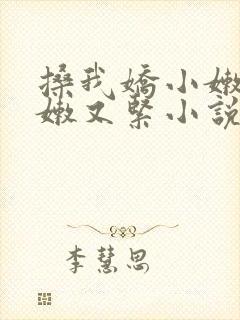 搡我嬌小嫩
嫩又緊小說
李慧思